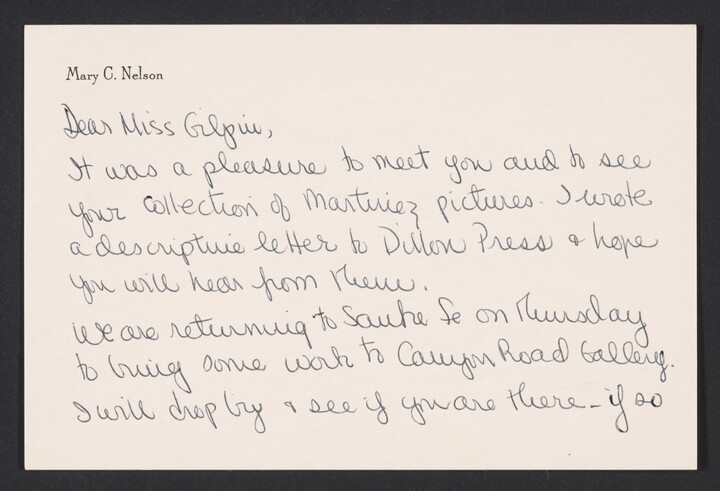 Mary C. Nelson
Dear Miss Gilpin,
It was a pleasure to meet you and to see
your collection of Martinez pictures. I wrote
a descriptive letter to Dillon Press & hope
you will hear from them.
We are returning to Santa Fe on Thursday
to bring some work to Canyon Road Gallery.
I will drop by & see if you are there - if so